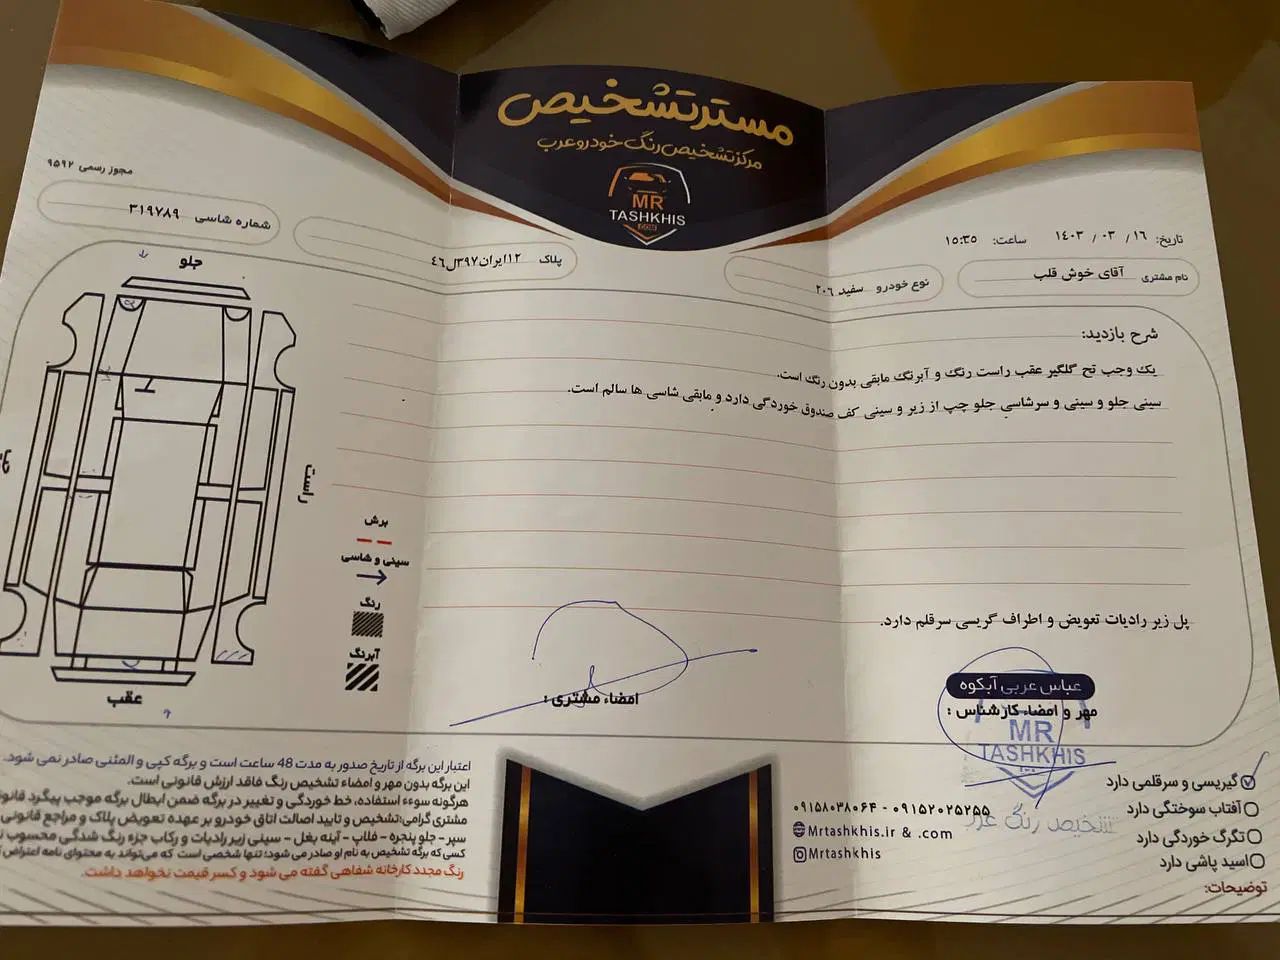 مسترتشخیص
مرکز تشخیص رنگ خودرو عرب
MR
TASHKHIS
.COM
مجوز رسمی ۹۵۹۲
تاریخ: ۱۶ / ۰۳ / ۱٤۰۳ ساعت: ۱۵:۳۵
نام مشتری آقای خوش قلب
نوع خودرو سفید ۲۰۶
پلاک ۱۲ایران۳۹۷ل٤٦
شماره شاسی ۳۱۹۷۸۹
شرح بازدید:
یک وجب تح گلگیر عقب راست رنگ و آبرنگ مابقی بدون رنگ است.
سینی جلو و سینی و سرشاسی جلو چپ از زیر و سینی کف صندوق خوردگی دارد و مابقی شاسی ها سالم است.
پل زیر رادیات تعویض و اطراف گریسی سرقلم دارد.
جلو
راست
عقب
برش
سینی و شاسی
رنگ
آبرنگ
عباس عربی آبکوه
مهر و امضاء کارشناس :
امضاء مشتری :
MR
TASHKHIS
تشخیص رنگ عرب
گیریسی و سرقلمی دارد
آفتاب سوختگی دارد
تگرگ خوردگی دارد
اسید پاشی دارد
توضیحات:
۰۹۱۵۸۰۳۸۰۶۴ - ۰۹۱۵۲۰۲۵۲۵۵
Mrtashkhis.ir & .com
Mrtashkhis
اعتبار این برگه از تاریخ صدور به مدت 48 ساعت است و برگه کپی و المثنی صادر نمی شود.
این برگه بدون مهر و امضاء تشخیص رنگ فاقد ارزش قانونی است.
هرگونه سوء استفاده، خط خوردگی و تغییر در برگه ضمن ابطال برگه موجب پیگرد
مشتری گرامی:تشخیص و تایید اصالت اتاق خودرو بر عهده تعویض پلاک و مراجع قانونی
سپر - جلو پنجره - فلاپ - آینه بغل - سینی زیر رادیات و رکاب جزء رنگ شدگی محسوب
کسی که برگه تشخیص به نام او صادر می شود؛ تنها شخصی است که می‌تواند به محتوای نامه اعتراض
رنگ مجدد کارخانه شفاهی گفته می شود و کسر قیمت نخواهد داشت.